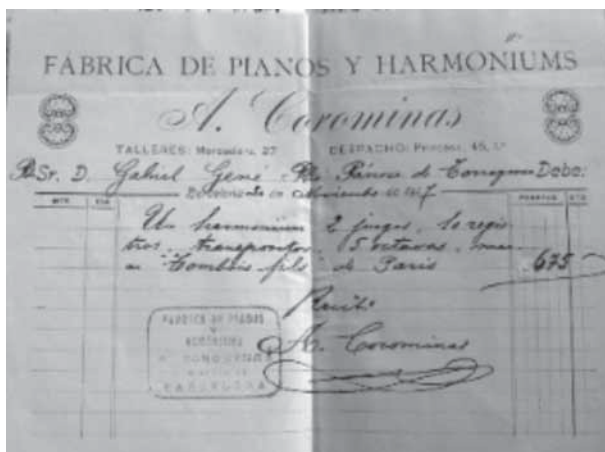 FABRICA DE PIANOS Y HARMONIUMS
A. Corominas
TALLERES: Mercaders, 27 DESPACHO: Princesa, 45, 1º
Sr. D. Gabriel Gené Pbro Debe:
Barcelona de Noviembre de 1917
PESETAS CTS
Un harmonium 2 juegos, 10 regis
tros, transpositor, 5 octavas, mar
ca fils" de Paris 675
Recibí
A. Corominas
FABRICA DE PIANOS
Y
HARMONIUMS
BARCELONA